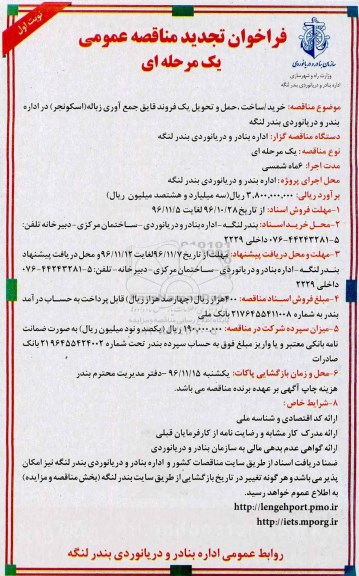 نوبت اول
سازمان بنادر و دریانوردی
وزارت راه و شهرسازی
اداره بنادر و دریانوردی بندر لنگه
فراخوان تجدید مناقصه عمومی
یک مرحله ای
موضوع مناقصه: خرید/ساخت ،حمل و تحویل یک فروند قایق جمع آوری زباله(اسکونجر) در اداره
بندر و دریانوردی بندر لنگه
دستگاه مناقصه گزار: اداره بنادر و دریانوردی بندر لنگه
نوع مناقصه: یک مرحله ای
مدت اجرا: ۶ماه شمسی
محل اجرای پروژه: اداره بندر و دریانوردی بندر لنگه
برآورد ریالی: ۳.۸۰۰.۰۰۰.۰۰۰ ریال(سه میلیارد و هشتصد میلیون ریال)
۱-مهلت فروش اسناد: از تاریخ ۹۶/۱۰/۲۸ لغایت ۹۶/۱۱/۵
۲-محل خرید اسناد: بندر لنگه -اداره بنادر و دریانوردی - ساختمان مرکزی - دبیرخانه تلفن:
۵-۰۷۶۴۴۲۴۳۲۸۱ داخلی ۲۲۲۹
۳-مهلت و محل دریافت پیشنهاد: مهلت از تاریخ ۹۶/۱۱/۷ لغایت ۹۶/۱۱/۱۲ و محل دریافت پیشنهاد
بندر لنگه - اداره بنادر و دریانوردی - ساختمان مرکزی - دبیرخانه - تلفن: ۵-۰۷۶۴۴۲۴۳۲۸۱
داخلی ۲۲۲۹
۴-مبلغ فروش اسناد مناقصه: ۴۰۰هزار ریال(چهارصد هزار ریال) قابل پرداخت به حساب در آمد
بندر به شماره ۲۱۷۶۴۵۵۴۱۱۰۰۸ بانک ملی
۵-میزان سپرده شرکت در مناقصه: ۱۹۰.۰۰۰.۰۰۰ ریال (یکصد و نود میلیون ریال) به صورت ضمانت
نامه بانکی معتبر و یا واریز مبلغ فوق به حساب سپرده بندر تحت شماره ۲۱۹۶۴۵۵۴۲۴۰۰۲ بانک
صادرات
۶-محل و زمان بازگشایی پاکات: یکشنبه ۹۶/۱۱/۱۵ -دفتر مدیریت محترم بندر
هزینه چاپ آگهی بر عهده برنده مناقصه می باشد.
۸-شرایط خاص :
ارائه کد اقتصادی و شناسه ملی
ارائه مدرک کار مشابه و رضایت نامه از کارفرمایان قبلی
ارائه گواهی عدم بدهی مالی به سازمان بنادر و دریانوردی
ضمنا دریافت اسناد از طریق سایت مناقصات کشور و اداره بنادر و دریانوردی بندر لنگه نیز امکان
پذیر می باشد و هر گونه تغییر در تاریخ بازگشایی از طریق سایت بندر لنگه (بخش مناقصه و مزایده)
به اطلاع عموم خواهد رسید.
http://lengehport.pmo.ir
http://iets.mporg.ir
روابط عمومی اداره بنادر و دریانوردی بندر لنگه